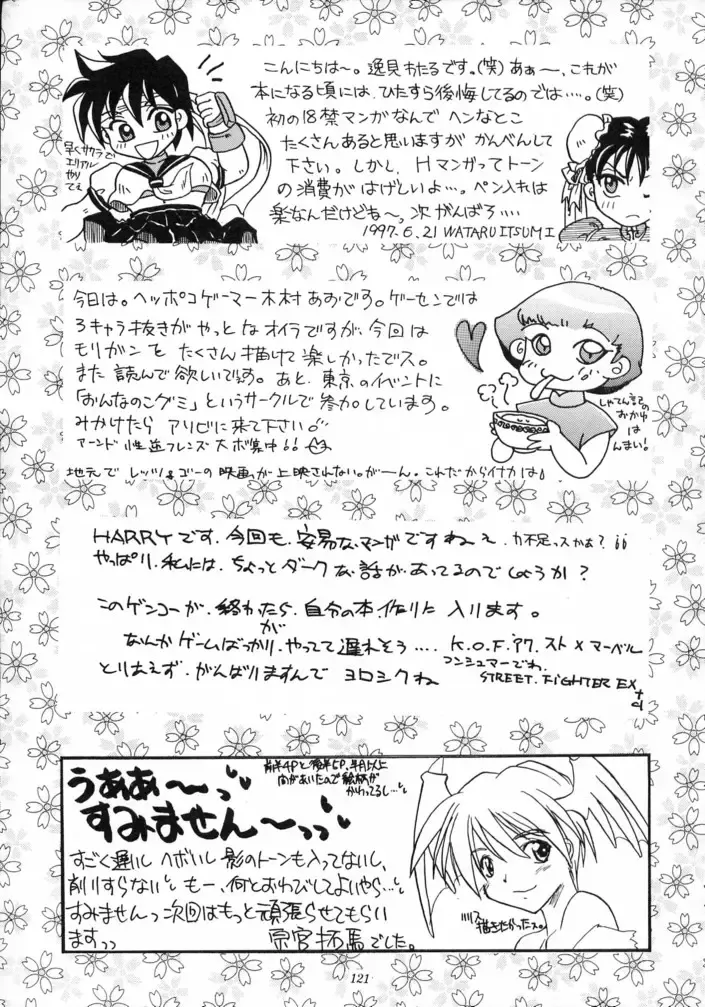 こんにちは～。逸見わたるです。(笑) あぁ～、これが
本になる頃には、ひたすら後悔してるのでは……。(笑)
初の18禁マンガなんで ヘンなとこ
たくさんあると思いますが かんべんして
下さい。しかし、Hマンガってトーン
の消費が はげしいよ…。ペン入れは
楽なんだけどね～、次 がんばろ‥‥
1997.6.21 WATARU ITSUMI
早くサクラで
エリアル
やりてぇ
今日は。ヘッポコゲーマー木村あおです。ゲーセンでは
3キャラ抜きが やっと なオイラですが、今回は
モリガンを たくさん描けて 楽しかったでス。
また 読んで 欲しいです。あと、東京のイベントに
「おんなのこグミ」というサークルで 参加しています。
みかけたら アソビに来て下さい
アーンド 性悪フレンズ 大ボ集中!!
地元で レッツ&ゴーの映画が上映されない。がーん。これだからイナカは
おかゆは
んまい!
HARRYです、今回も、安易な、マンガですねー、力不足っスかぁ?
やっぱり、私には、ちょっとダークな、話が、あってるのでしょうか?
このゲンコーが、終わったら、自分の本、作りに入ります。
なんかゲームばっかりが、やってて遅れそう‥‥ K.O.F.'97. スト×マーベル
コンシュマーでわ、
STREET.FIGHTER EX+α
とりあえず、がんばりますんで ヨロシクね
うああ～っ
すみません～っっ
前半4Pと後半5P、半月以上
間があいたので絵柄が
かわってるし…
すごく遅いし ヘボいし 影のトーンも入ってないし、
削りすらない もー、何とおわびしてよいやら…
すみませんっ次回はもっと頑張らせてもらい
ますっっ
宗官拓馬でした。
描きたかったっス。
121